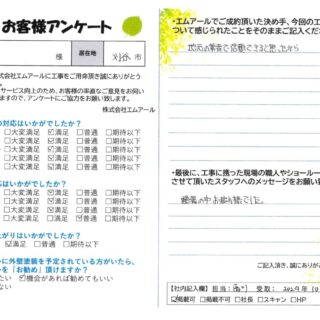 お客様アンケート
様
居在地
刈谷 市
株式会社エムアールに工事をご用命頂き誠にありがとう
サービス向上のため、お客様の率直なご意見をお伺い
ますので、アンケートにご協力をお願い致します。
株式会社エムアール
の対応はいかがでしたか？
□大変満足 ☑満足 □普通 □期待以下
□大変満足 ☑満足 □普通 □期待以下
□大変満足 ☑満足 □普通 □期待以下
□大変満足 ☑満足 □普通 □期待以下
はいかがでしたか？
□大変満足 ☑満足 □普通 □期待以下
□大変満足 ☑満足 □普通 □期待以下
□大変満足 ☑満足 □普通 □期待以下
上がりはいかがでしたか？
足 ☑満足 □普通 □期待以下
に外壁塗装を予定されている方がいたら、
を「お勧め」頂けますか？
たい ☑機会があれば勧めてもいい
ない
・エムアールでご成約頂いた決め手、今回の工
ついて感じられたことをそのままご記入くださ
地元の業者で信頼できると思ったから
・最後に、工事に携った現場の職人やショールー
させて頂いたスタッフへのメッセージをお願い致
ご記入頂き、誠にありがと
【社内記入欄】担当：
受取：
☑掲載可 □掲載不可 □社長 □スキャン □HP